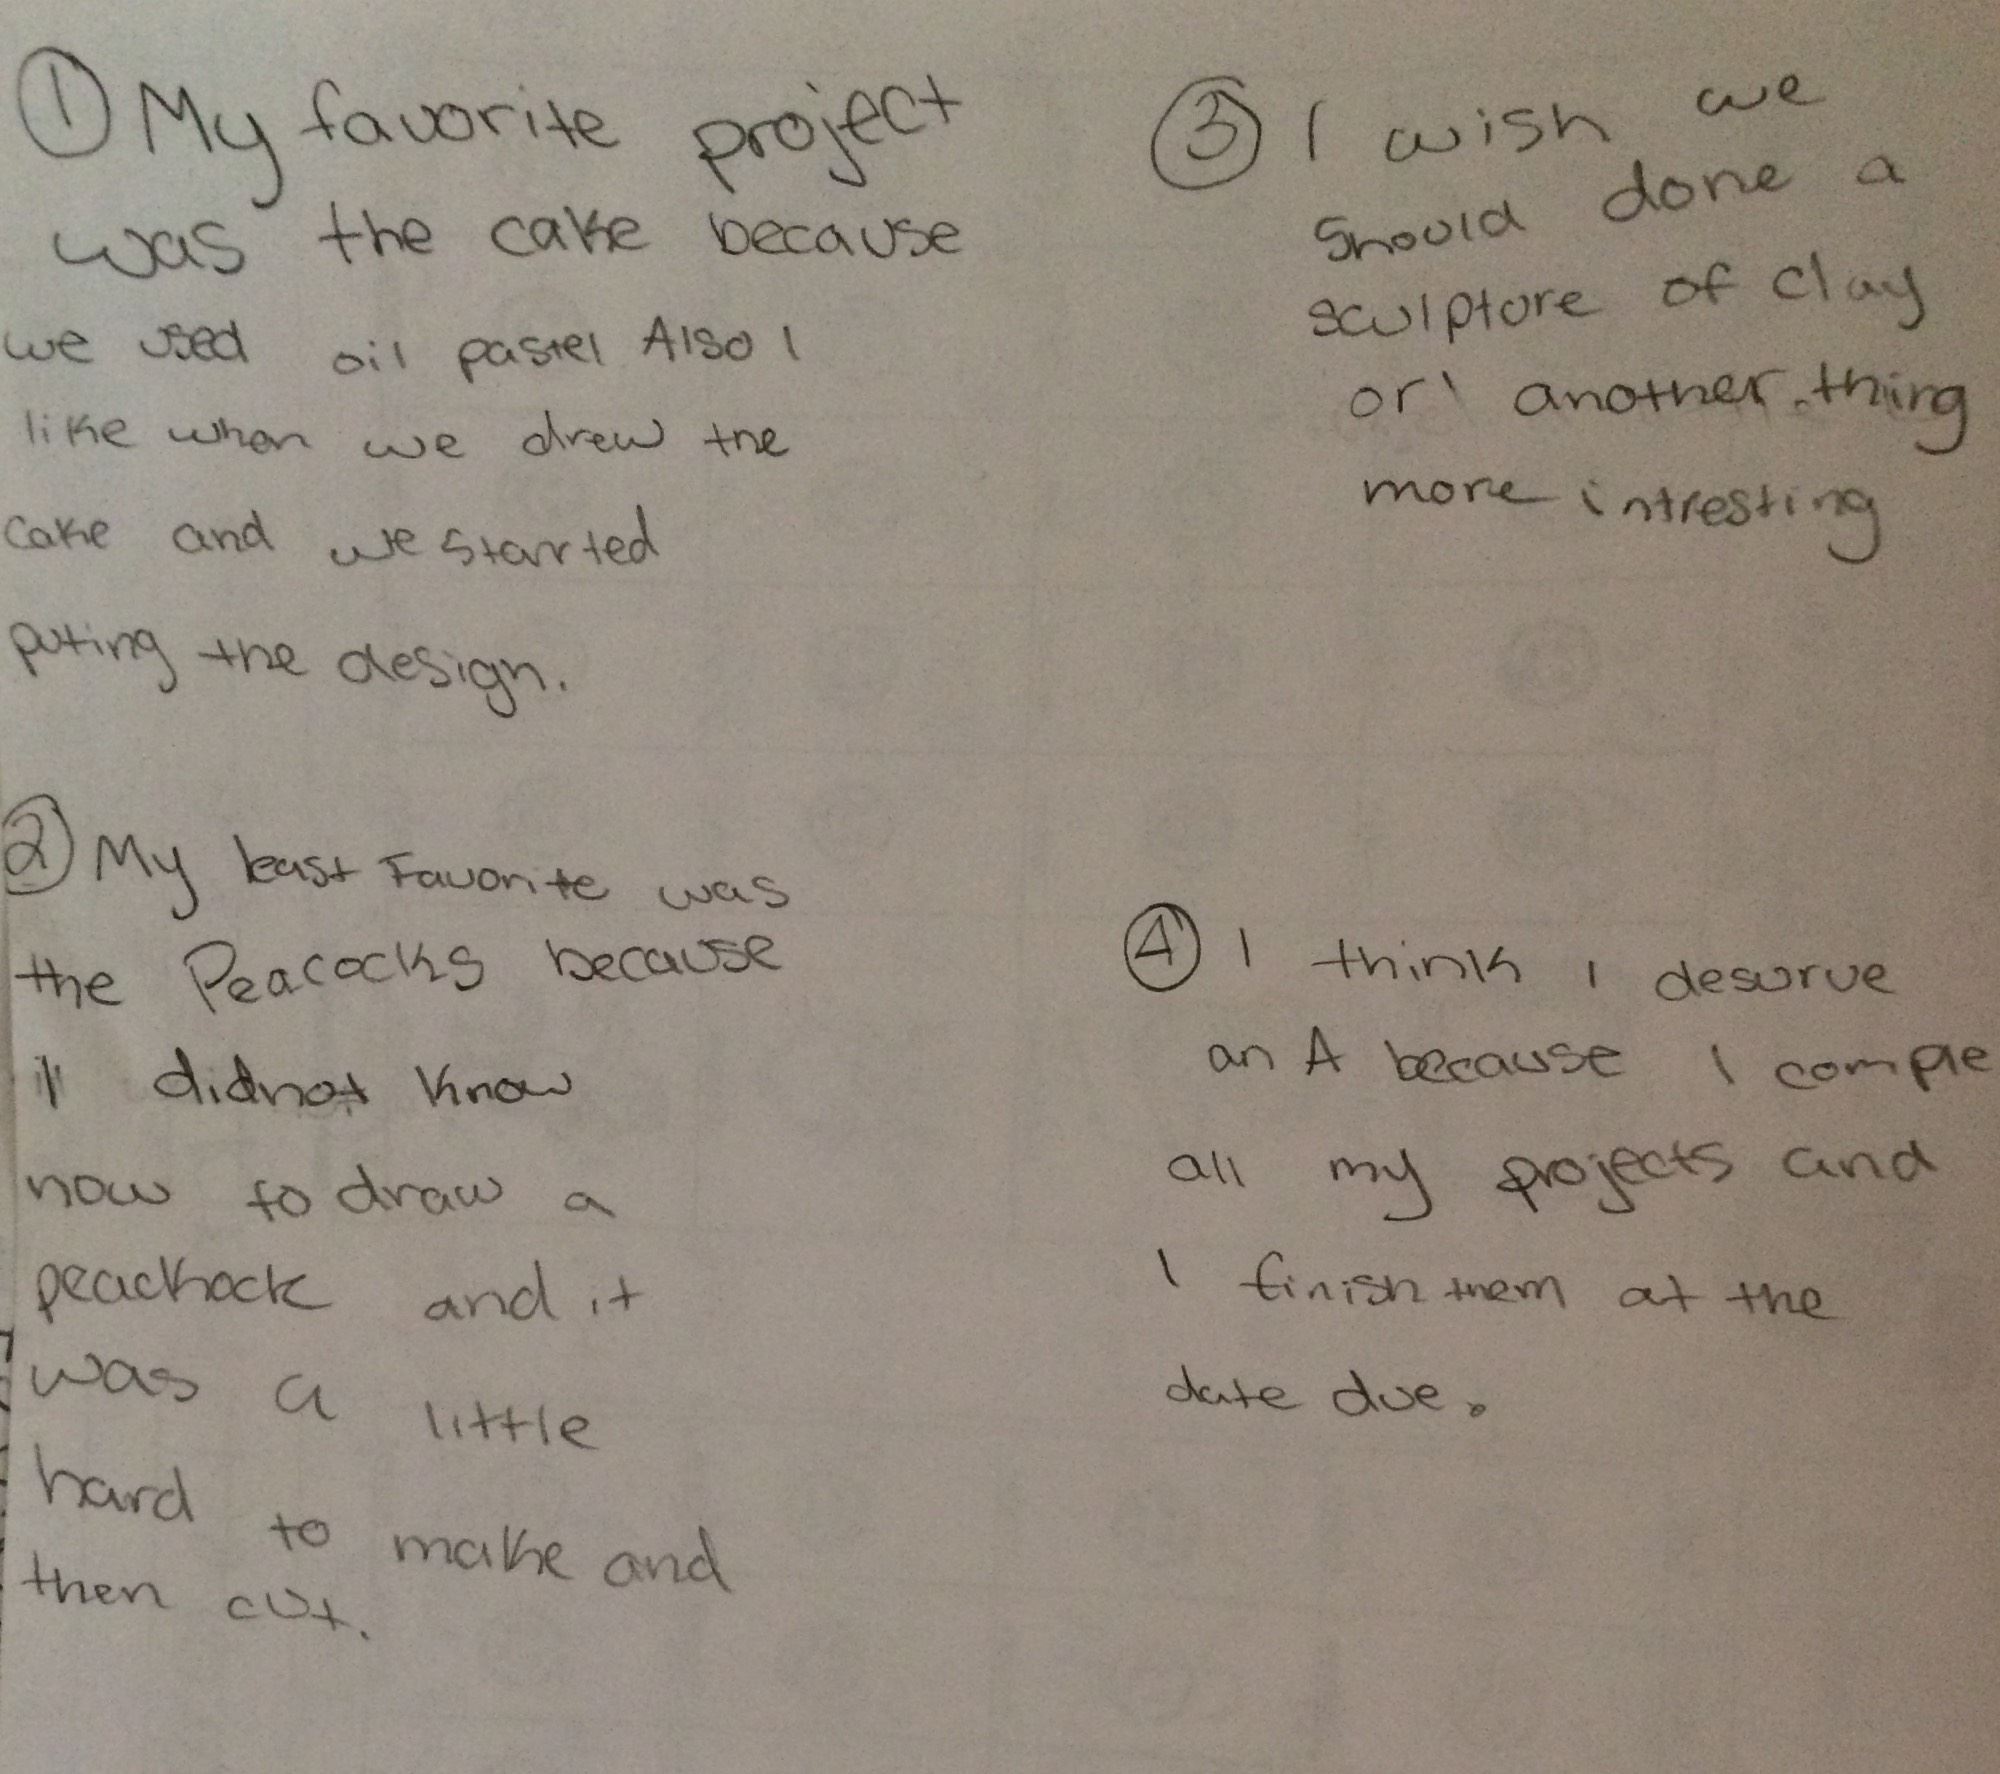 ① My favorite project
was the cake because
we used oil pastel Also I
like when we drew the
cake and we starrted
puting the design.
② My least Favorite was
the Peacocks because
I didnot know
how to draw a
peachock and it
was a little
hard to make and
then cut.
③ I wish we
should done a
sculpture of clay
or another thing
more intresting
④ I think I deserve
an A because I comple
all my projects and
I finish them at the
date due.